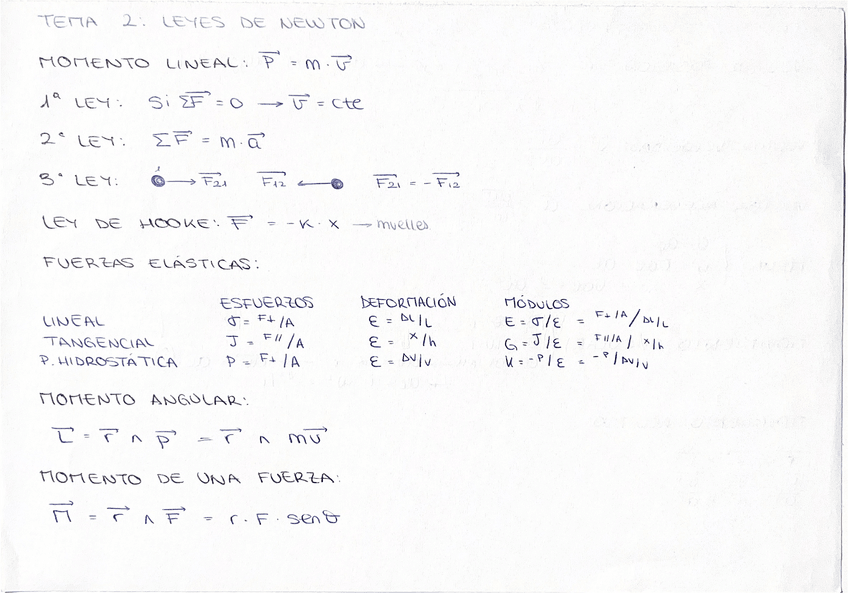 TEMA 2: LEYES DE NEWTON
MOMENTO LINEAL: P⃗ = m · v⃗
1ª LEY: Si ΣF⃗ = 0 → v⃗ = cte
2ª LEY: ΣF⃗ = m · a⃗
3ª LEY: → F⃗21 F⃗12 ← F⃗21 = - F⃗12
LEY DE HOOKE: F⃗ = -K · x → muelles
FUERZAS ELÁSTICAS:
ESFUERZOS DEFORMACIÓN MÓDULOS
LINEAL σ = F⊥/A ε = ΔL/L E = σ/ε = F⊥/A / ΔL/L
TANGENCIAL J = F∥/A ε = x/h G = J/ε = F∥/A / x/h
P. HIDROSTÁTICA P = F⊥/A ε = ΔV/V K = -P/ε = -P/ΔV/V
MOMENTO ANGULAR:
L⃗ = r⃗ ∧ p⃗ = r⃗ ∧ mv⃗
MOMENTO DE UNA FUERZA:
M⃗ = r⃗ ∧ F⃗ = r · F · senθ